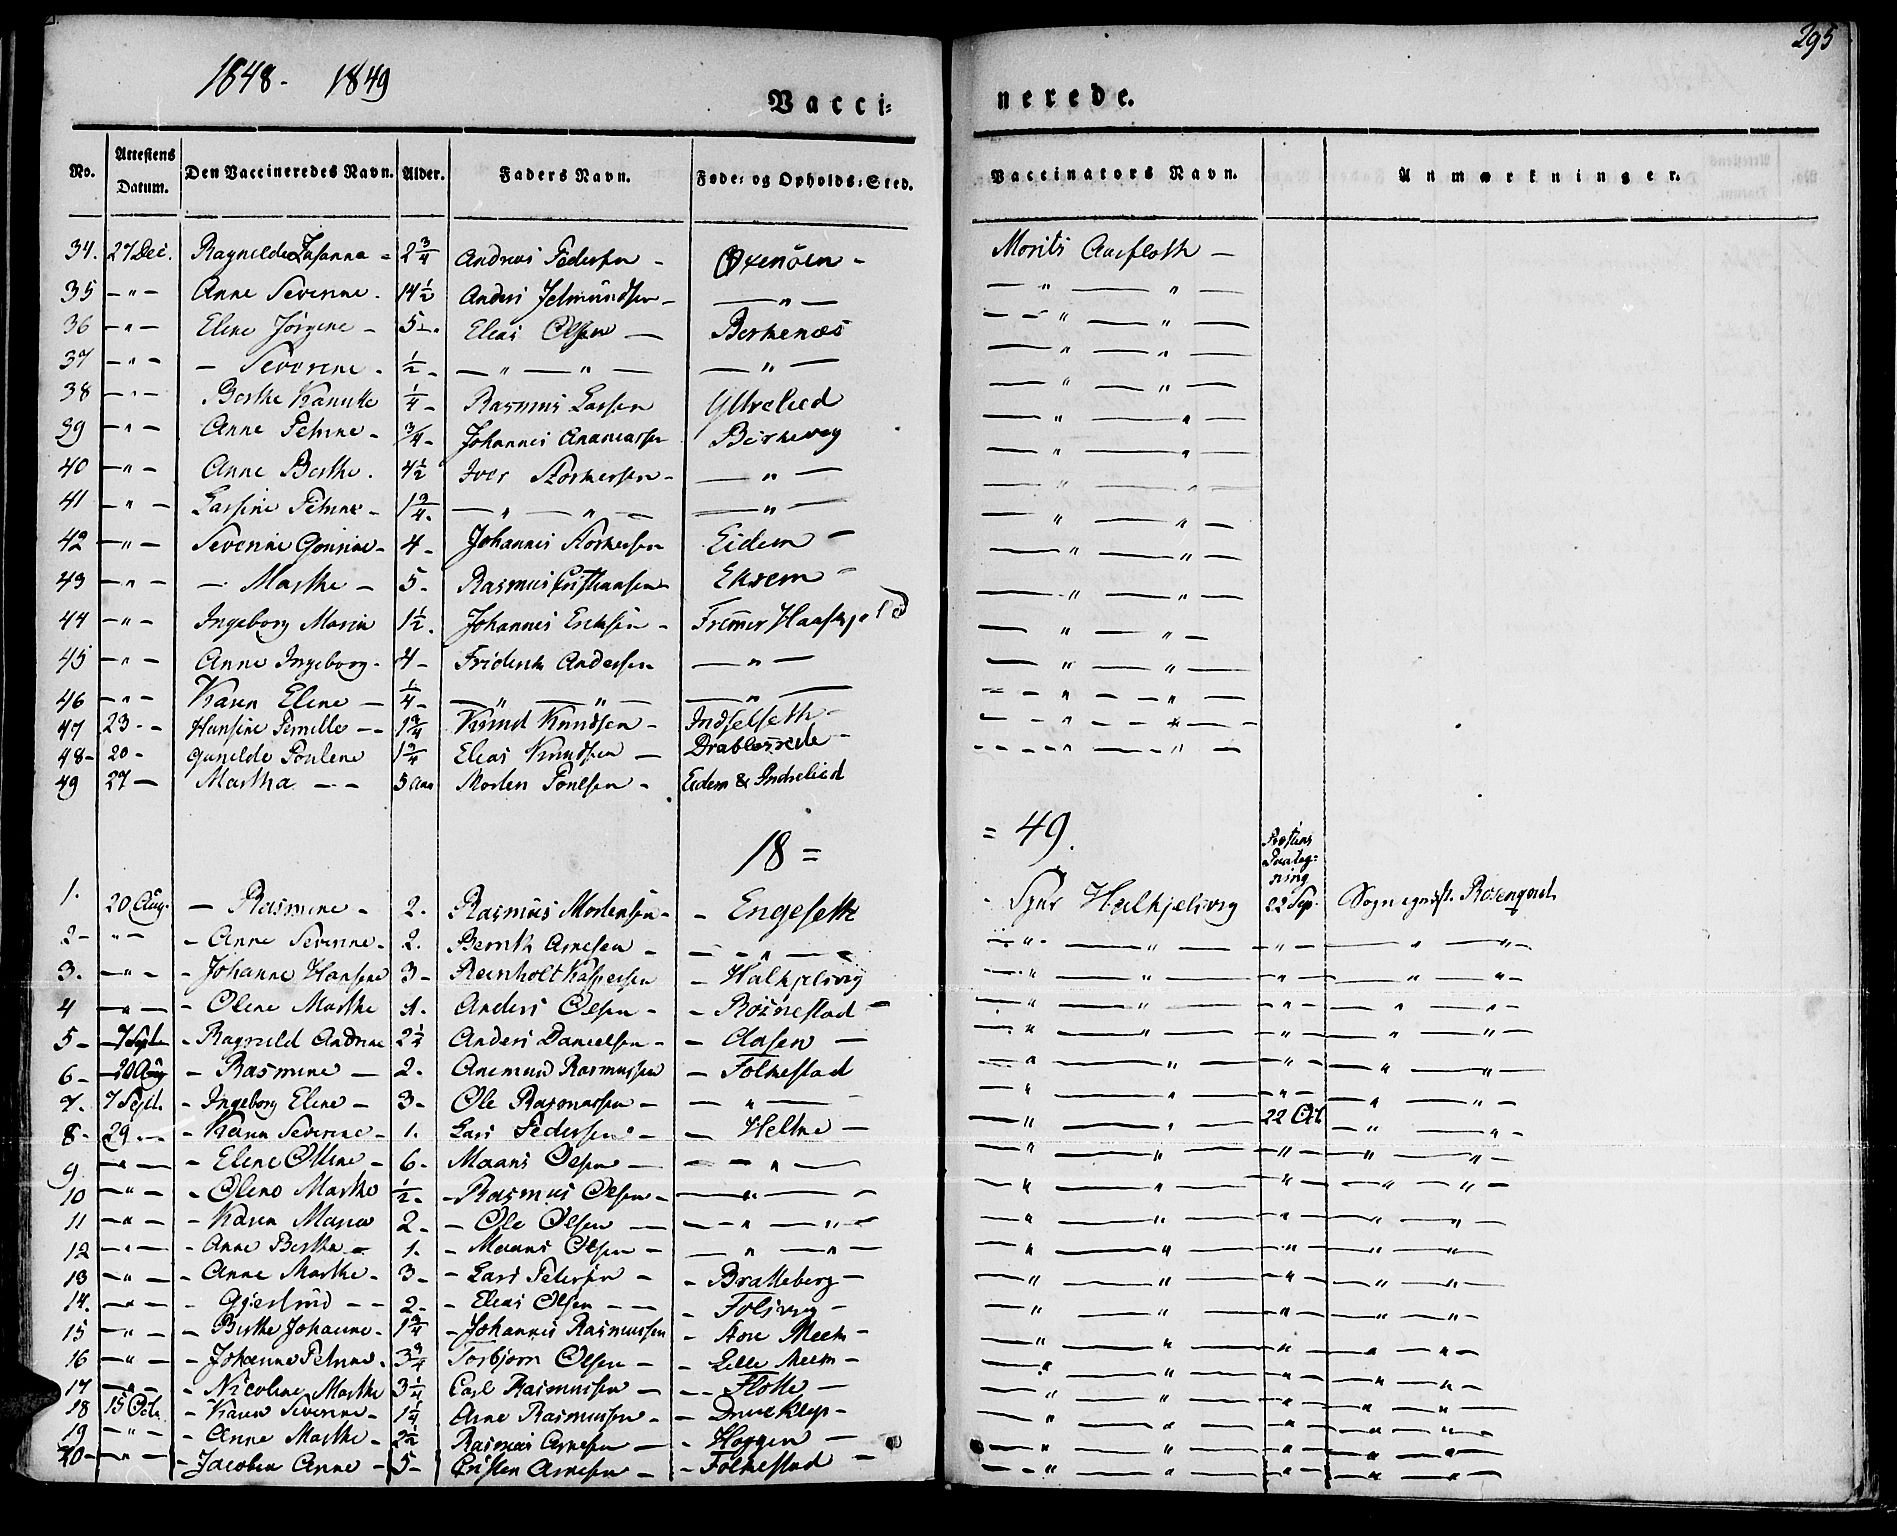 295
1848 - 1849
Vacci= nerede.
No. Attestens Datum. Den Vaccineredes Navn. Alder. Faders Navn. Føde= og Opholds=Sted. Vaccinators Navn. Anmærkninger.
34. 27 Dec. Ragnilde Susanna - 2 3/4 Andreas Pedersen - Oxenöen - Morits Aarfloth -
35 - " - Anne Severine. 14 1/2 Anders - — " — — " — " —
36 - " - Eline Jörgine - 5 -. Elias Olsen — Birkenæs — " — " —
37 - " - — Severine - 1/2 - — " — " — — " — — " — " —
38 - " - Berthe Kanutte 1/4 - Rasmus Larsen Yttrelied — " — " —
39 - " - Anne Petrine - 3/4 - Johannes Ananiassen Birkevog — " — " —
40 - " - Anne Berthe. 4 1/2 Iver Storkersen - — " — — " — " —
41 - " - Larsine Petrine - 1 3/4. — " — " — — " — — " — " —
42 - " - Severine Gonine - 4 - Johannes Storkersen Eidem - — " — " —
43 - " - — Marthe - 5 - Rasmus Cristiansen Ekrem - — " — " —
44 - " - Ingeborg Marie 1 1/2. Johannes Ericksen - Fremer Haaskjold — " — " —
45 - " - Anne Ingeborg - 4 - Friderik Andersen — " — — " — " —
46 - " - Karen Eline - 1/4 - — " — " — — " — — " — " —
47 23 - - Hansine Pernille - - 1 3/4 Knud Knudsen - Indselseth - — " — " —
48 - 20 - Gunilde Poulene 1 3/4 Elias Knudsen - — " — " —
49 27 - Martha - - 5 Aar Morten Poulsen - Eidem & Indrelied
18 = = 49.
1. 20 Aug. - Rasmine - 2. Rasmus Mortensen - - Engeseth - Halkjelsvig 22 Sep. Rosenqvist
2 - " - - Anne Severine - 2. Bernth Arnesen - - - " - — " — " — - " - — " — " —
3. - " - - Johanne Hansine 3 - Reinholt Kaspersen - Halkjelsvig — " — " — - " - — " — " —
4 - " - - Oline Marthe 4. Anders Olsen - - — " — " — - " - — " — " —
5 - 7 Sept. - Ragnild Andrine Anders Danielsen - - Aasen — — " — " — - " - — " — " —
6 - 20 Aug - Rasmine — 2. Anemund Rasmussen - Folkestad — " — " — - " - — " — " —
7. 7 Sept. - Ingeborg Eline - 3 - Ole Rasmussen - — " — — " — " — - " - — " — " —
8 - 29 - - - Karen Severine - 1. Lars Pedersen - — Heltne — — " — " — 22 Oct. — " — " —
9. - " - - Eline Oline - 6 - Maans Olsen — — " — — " — " — - " - — " — " —
10 - " - - Oline Marthe 1/2 - - Rasmus Olsen - — " — — " — " — - " - — " — " —
11 - " - - Karen Maria 2 - - Ole Olsen — — " — " — — " — " — - " - — " — " —
12 - " - - Anne Berthe - 1. - Maans Olsen - — " — " — — " — " — - " - — " — " —
13 - " - - Anne Marthe - 3 - - Lars Petersen - - Bratteberg - — " — " — - " - — " — " —
14. - " - - Gjertrud - - 2 - - Elias Olsen - - - Folsvog - — " — " — - " - — " — " —
15 - " - - Berthe Johanne - 1 3/4 - Johannes Rasmussen - Store Meem - — " — " — - " - — " — " —
16 - " - - Johanne Petrine. 3 3/4 Torbjorn Olsen - - Lille Meem - — " — " — - " - — " — " —
17 - " - - Nicoline Marthe 3 1/4 Carl Rasmussen — - Flotte - — " — " — - " - — " — " —
18 15 Octb. - Karen Severine - 1 1/4 Arne Rasmussen - - — " — " — - " - — " — " —
19 - " - - Anne Marthe - 2 1/2 Rasmus Arnesen — - Haggen - — " — " — - " - — " — " —
20 - - " - - Jacobine Anne - 5 - Cristen Arnesen - - Folkestad - — " — " — - " - — " — " —